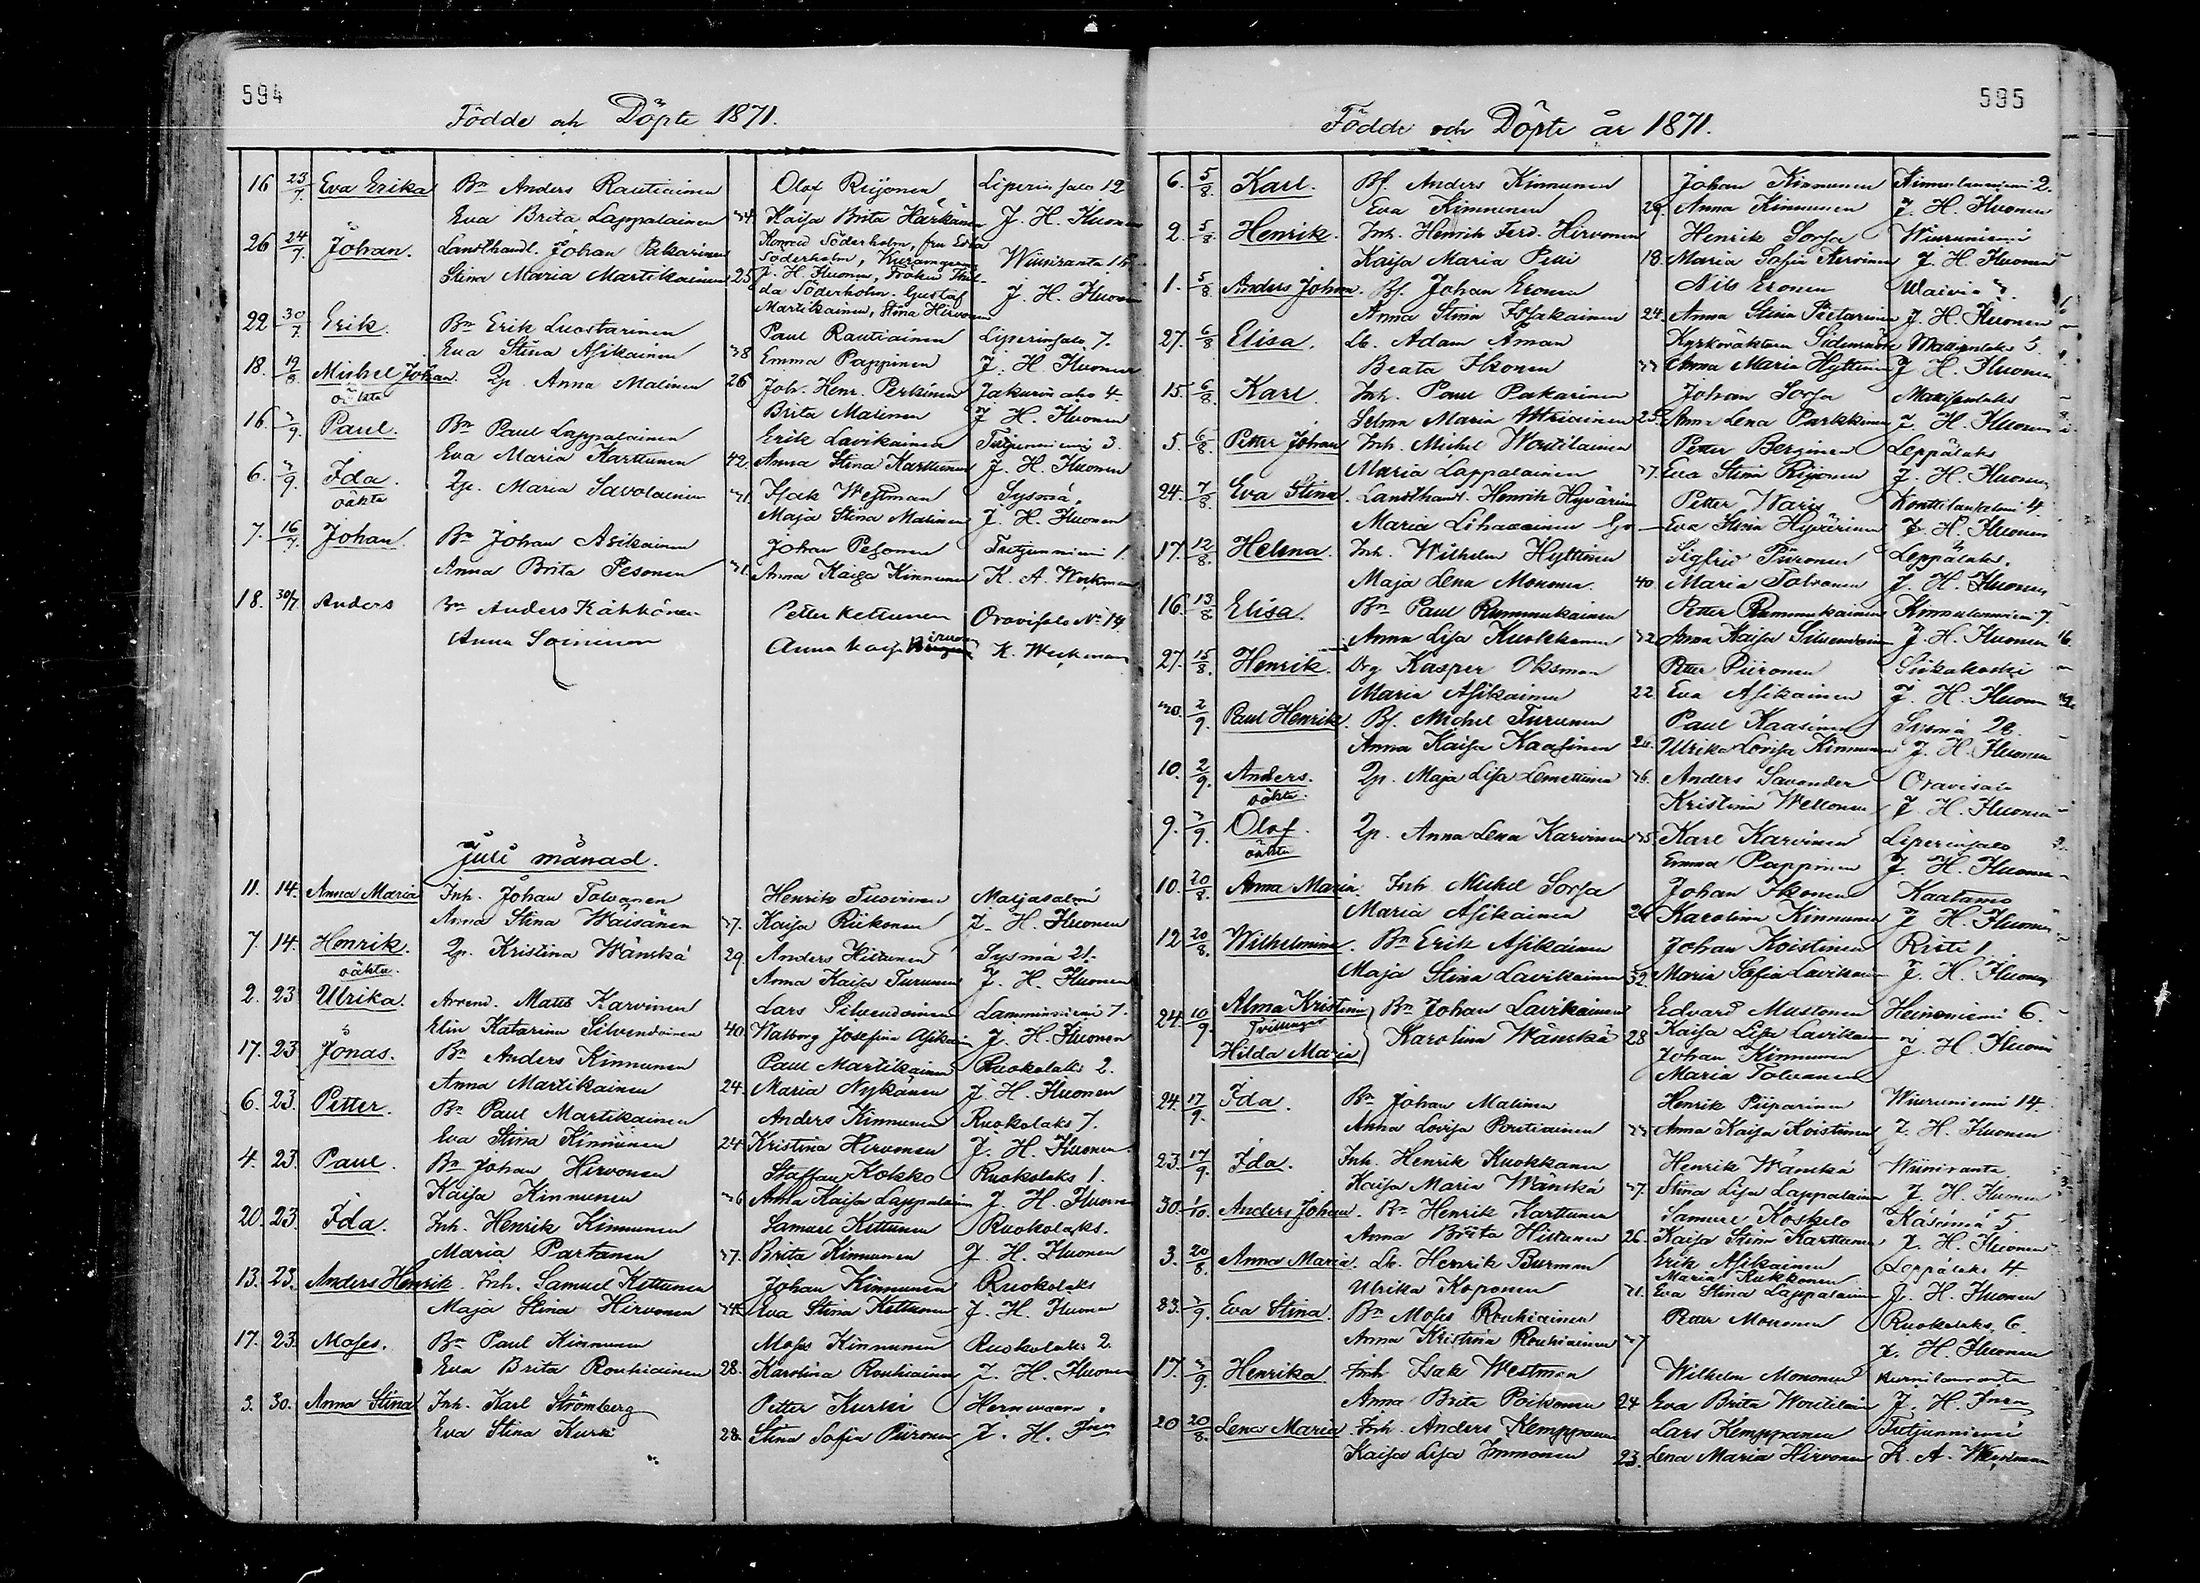 594
Födde och Döpte 1871.
16 23/7 Eva Erika Bn Anders Rautiainen Olof Riijonen Liperinsalo 12
Eva Brita Lappalainen 34 Kaisa Brita Härkänen J. H. Fluonen
26 24/7 Johan. Landthandl. Johan Pakarinen Konrad Söderholm, fru Edla Wiiniranta 18
Söderholm,
Stina Maria Martikainen 25 J. H. Fluonen, Fröken Thil-
da Söderholm. Gustaf J. H. Fluonen
Martikainen, Stina Hirvonen
22 30/7 Erik. Bn Erik Luostarinen Paul Rautiainen Liperinsalo 7.
Eva Stina Asikainen 38 Emma Pappinen J. H. Fluonen
18. 19/8 Michel Johan. Qp. Anna Malinen 26 Joh. Henr. Pertinen 4
oäkta Brita Malinen J. H. Fluonen
16. 3/9. Paul. Bn Paul Lappalainen Erik Lavikainen Tutjunniemi 3.
Eva Maria Karttunen 42. Anna Stina Karttunen J. H. Fluonen
6. 3/9. Ida. Qp. Maria Savolainen 31 Isak Westman Sysmä,
oäkta Maja Stina Malinen J. H. Fluonen
7. 16/7. Johan Bn Johan Asikainen Johan Pesonen Tutjunniemi 1.
Anna Brita Pesonen 31. Anna Kaisa Kinnunen K. A. Weckman
18. 30/7 Anders Bn Anders Kähkönen Petter Kettunen Oravisalo No 14
Anna Soininen Anna Kaisa Hirvonen K. Weckman
Juli månad.
11. 14. Anna Maria Inh. Johan Tolvanen Henrik Tuovinen Matjasalmi
Anna Stina Waisänen 37. Kaisa Riikonen J. H. Fluonen
7. 14. Henrik. Qp. Kristina Wänskä 29. Anders Hiltunen Sysmä 21.
oäkta. Anna Kaisa Turunen J. H. Fluonen
2. 23 Ulrika. Arrend. Matts Karvinen Lars Silvendoinen Lamminniemi 7.
Elin Katarina Silvendoinen 40. Walborg Josefina Asikain J. H. Fluonen
17. 23 Jonas. Bn Anders Kinnunen Paul Martikainen Ruokolaks 2.
Anna Martikainen 24. Maria Nykänen J. H. Fluonen
6. 23. Petter. Bn Paul Martikainen Anders Kinnunen Ruokolaks 7.
Eva Stina Kinnunen 24 Kristina Hirvonen J. H. Fluonen
4. 23. Paul. Bn Johan Hirvonen Staffan Kokko Ruokolaks 1.
Kaisa Kinnunen 36 Anna Kaisa Lappalainen J. H. Fluonen
20. 23. Ida. Inh. Henrik Kinnunen Samuel Kettunen Ruokolaks.
Maria Partanen 37. Brita Kinnunen J. H. Fluonen
13. 23. Anders Henrik Inh. Samuel Kettunen Johan Kinnunen Ruokolaks
Maja Stina Hirvonen 34. Eva Stina Kettunen J. H. Fluonen
17. 23. Moses. Bn Paul Kinnunen Moses Kinnunen Ruokolaks 2.
Eva Brita Rouhiainen 28. Karolina Rouhiainen J. H. Fluonen
3. 30. Anna Stina Inh. Karl Strömberg Petter Kurki Hernevaara
Eva Stina Kurki 28. Stina Sofia Piironen J. H. Fnen
595
Födde och Döpte år 1871.
6. 5/8. Karl. Bf. Anders Kinnunen Johan Kinnunen Kinnulanniemi 2.
Eva Kinnunen 29. Anna Kinnunen J. H. Fluonen
2. 5/8. Henrik. Inh. Henrik Ferd. Hirvonen Henrik Sorsa Wiiruniemi
Kaisa Maria Pelli 18. Maria Sofia Kervinen J. H. Fluonen
1. 5/8. Anders Johan. Bf. Johan Eronen Nils Eronen Waivio
Anna Stina Issakainen 24. Anna Stina Pietarinen J. H. Fluonen
27. 6/8 Elisa. Lb. Adam Åman Kyrkoväktaren Mattisenlaks 5.
Beata Ikonen 33 Anna Maria Hyttinen J. H. Fluonen
15. 6/8. Karl. Inh. Paul Pakarinen Johan Sorsa Mattisenlaks
Selma Maria Utriainen 25. Anna Lena Parkkinen J. H. Fluonen
5. 6/8. Petter Johan Inh. Michel Woutilainen Petter Berginen Leppälaks
Maria Lappalainen 37. Eva Stina Riijonen J. H. Fluonen
24. 7/8. Eva Stina. Landthandl. Henrik Hyvärinen Petter Waris Konttilanlaksi 4.
Maria Lihavainen Eva Stina Hyvärinen J. H. Fluonen
17. 12/8. Helena. Inh. Wilhelm Hyttinen Sigfrid Piironen Leppälaks.
Maja Lena Mononen. 40. Maria Tolvanen J. H. Fluonen
16. 13/8. Elisa. Bn Paul Rummukainen Petter Rummukainen Kinnulanniemi 7.
Anna Lisa Kuokkanen 32 Anna Kaisa Silvendoinen J. H. Fluonen
27. 15/8. Henrik. Drg Kasper Oksman Petter Piironen Siikakoski
Maria Asikainen 22. Eva Asikainen J. H. Fluonen
30. 2/9. Paul Henrik. Bf. Michel Turunen Paul Kaasinen Sysmä 28.
Anna Kaisa Kaasinen 26. Ulrika Lovisa Kinnunen J. H. Fluonen
10. 2/9. Anders. Qp. Maja Lisa Lemettinen 36. Anders Savander Oravisalo
oäkta. Kristina Wellonen J. H. Fluonen
9. 3/9. Olof. Qp. Anna Lena Karvinen 35. Karl Karvinen Liperinsalo
oäkta Emma Pappinen J. H. Fluonen
10. 20/8. Anna Maria Inh Michel Sorsa Johan Ikonen Kaatamo
Maria Asikainen 26 Karolina Kinnunen J. H. Fluonen
12 20/8. Wilhelmina. Bn Erik Asikainen Johan Koistinen Risti 1.
Maja Stina Lavikainen 32. Maria Sofia Lavikainen J. H. Fluonen
24. 10/9. Alma Kristina Bn Johan Lavikainen Edvard Mustonen Heinoniemi 6.
Tvillingar Karolina Wänskä 28 Kaisa Lisa Lavikainen J. H. Fluonen
Hilda Maria Johan Kinnunen
Maria Tolvanen
24. 17/9. Ida. Bn Johan Malinen Henrik Piiparinen Wiiruniemi 14.
Anna Lovisa Poutiainen 33 Anna Kaisa Koistinen J. H. Fluonen
23. 17/9. Ida. Inh. Henrik Kuokkanen Henrik Wänskä Wiiniranta
Kaisa Maria Wänskä 37. Stina Lisa Lappalainen J. H. Fluonen
30. 1/10. Anders Johan. Bn Henrik Karttunen Samuel Koskelo Käsämä 5
Anna Brita Hiltunen 26. Kaisa Stina Karttunen J. H. Fluonen
3. 20/8. Anna Maria. Lb. Henrik Burman Erik Asikainen Leppälaks 4.
Maria Kukkonen
Ulrika Koponen 31. Eva Stina Lappalainen J. H. Fluonen
23. 3/9. Eva Stina. Bn Moses Rouhiainen Petter Mononen Ruokolaks 6.
Anna Kristina Rouhiainen 37 J. H. Fluonen
17. 3/9. Henrika Inh Isak Westman Wilhelm Mononen
Anna Brita Poikonen 24 Eva Brita Woutilain J. H. Fnen
20 20/8. Lena Maria. Inh. Anders Kemppanen Lars Kemppanen Tutjunniemi
Kaisa Lisa Immonen 23. Lena Maria Hirvonen K. A. Weckman